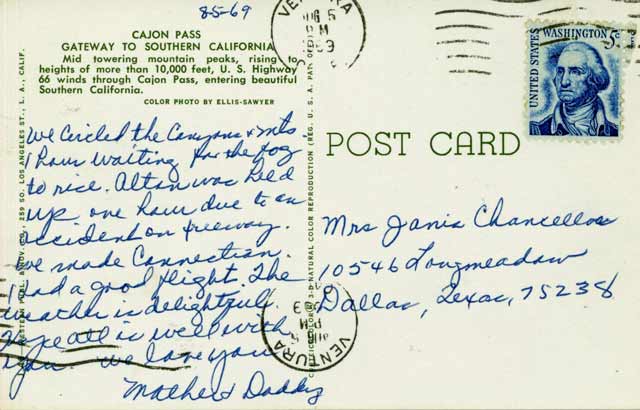 8-5-69
CAJON PASS
GATEWAY TO SOUTHERN CALIFORNIA
Mid towering mountain peaks, rising to
heights of more than 10,000 feet, U. S. Highway
66 winds through Cajon Pass, entering beautiful
Southern California.
COLOR PHOTO BY ELLIS-SAWYER
We Circled the Canyons & mts
1 hour waiting for the fog
to rise. Alton was held
up one hour due to an
accident on freeway.
We made Connection.
Had a good flight. The
weather is delightful.
Hope all is well with
you. We love you
Mother & Daddy
259 SO. LOS ANGELES ST., L. A., CALIF.
NATURAL COLOR REPRODUCTION (REG. U. S. A. PAT. OFF.)
POST CARD
UNITED STATES
WASHINGTON 5c
Mrs Janis Chancellor
10546 Longmeadow
Dallas, Texas, 75238
VENTURA
PM
VENTURA
AUG 5
PM